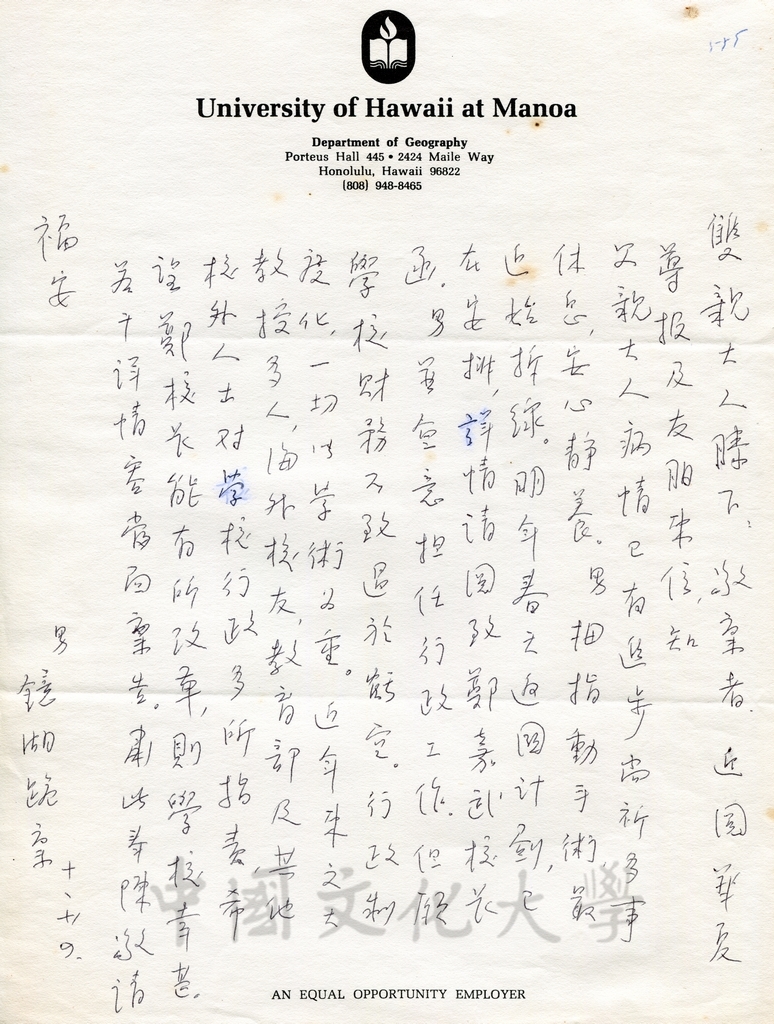 585
University of Hawaii at Manoa
Department of Geography
Porteus Hall 445 • 2424 Maile Way
Honolulu, Hawaii 96822
(808) 948-8465
雙親大人膝下：敬稟者．近閱華夏
導報及友朋來信，知
父親大人病情已有進步尚祈多事
休息，安心靜養。男拇指動手術最
近始拆線。明年春天返國計劃，已
在安排，詳情請閱致鄭嘉武校長
函．男並無意擔任行政工作。但願
學校財務不致過於虧空。行政制
度化，一切以學術為重。近年來文大
教授多人，海外校友，教育部及其他
校外人士對學校行政多所指責希
望鄭校長能有所改革，則學校幸甚。
若干詳情容當面稟告。肅此奉陳敬請
福安
男鏡湖跪稟 十、十九．
AN EQUAL OPPORTUNITY EMPLOYER
中國文化大學